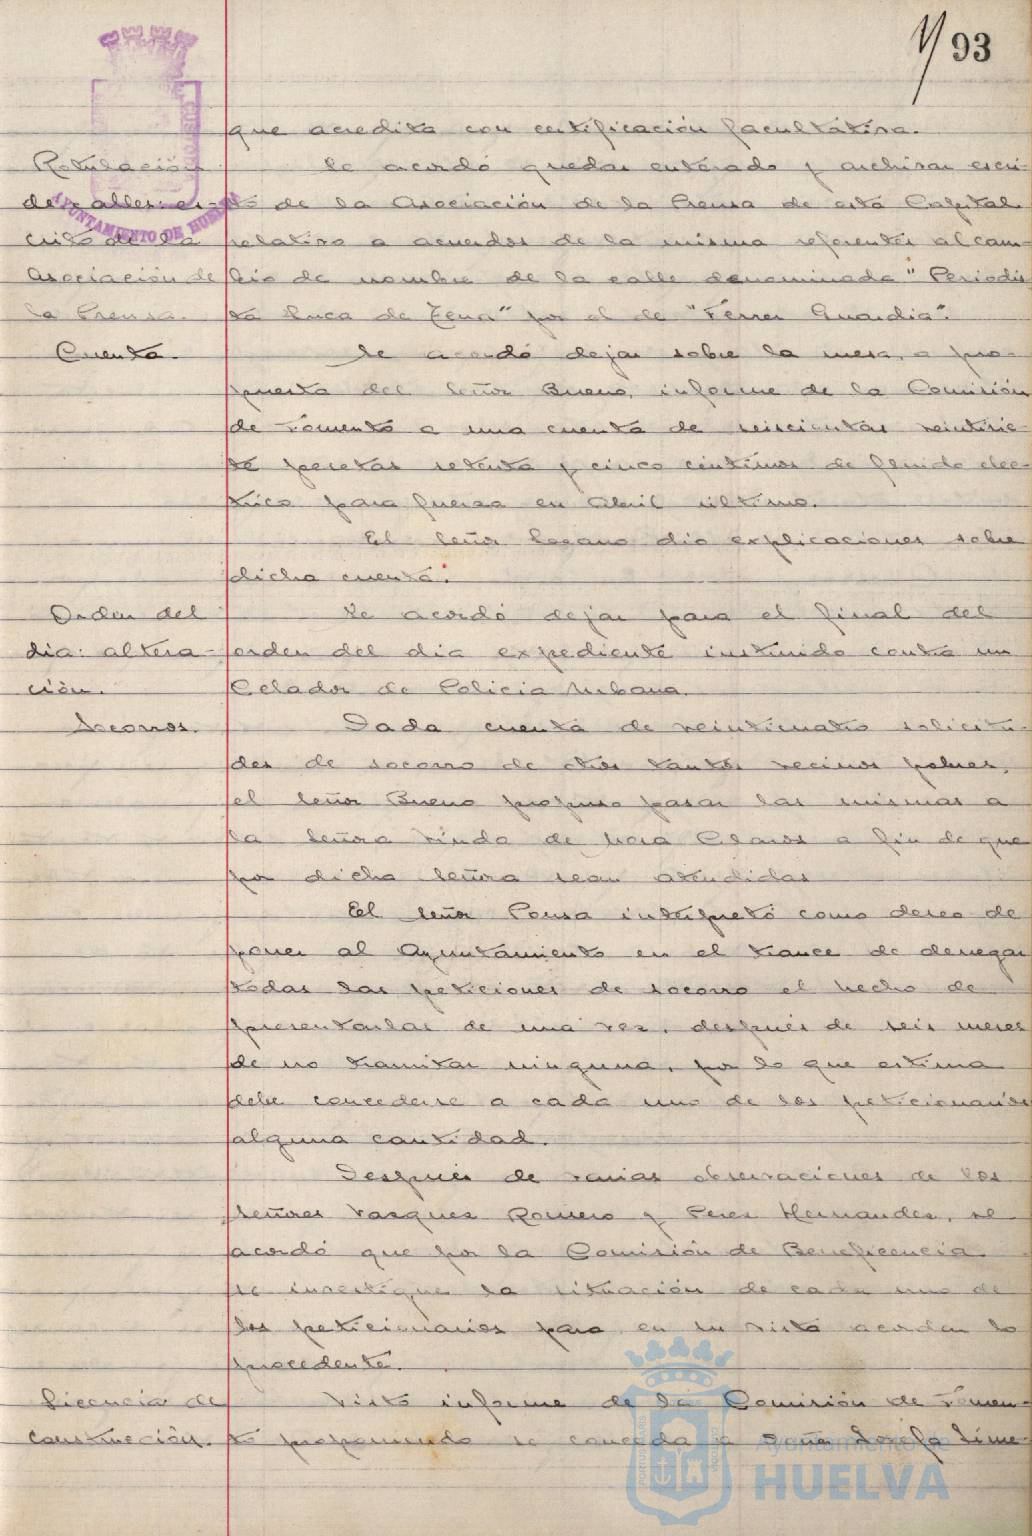 93
que acredita con certificación facultativa.
Rotulación Se acordó quedar enterado y archivar escri-
de calles: es- to de la Asociación de la Prensa de esta Capital
crito de la relativo a acuerdos de la misma referentes al cam-
Asociación de bio de nombre de la calle denominada "Periodis
la Prensa. ta Luca de Tena" por el de "Ferrer Guardia".
Cuenta. Se acordó dejar sobre la mesa, a pro-
puesta del Señor Bueno, informe de la Comisión
de Fomento a una cuenta de seiscientas veintisie-
te pesetas setenta y cinco céntimos de fluido elec-
trico para fuerza en Abril último.
El Señor Lozano dio explicaciones sobre
dicha cuenta.
Orden del Se acordó dejar para el final del
dia: altera- orden del dia expediente instruido contra un
ción. Celador de Policia Urbana.
Socorros. Dada cuenta de veinticuatro solicitu-
des de socorro de otros tantos vecinos pobres,
el Señor Bueno propuso pasar las mismas a
la Señora Viuda de Mora Claros a fin de que
por dicha Señora sean atendidas
El Señor Ponsa interpretó como deseo de
poner al Ayuntamiento en el trance de denegar
todas las peticiones de socorro el hecho de
presentarlas de una vez, después de seis meses
de no tramitar ninguna, por lo que estima
debe concederse a cada uno de los peticionarios
alguna cantidad.
Después de varias observaciones de los
Señores Vazquez Romero y Perez Hernandez, se
acordó que por la Comisión de Beneficencia
se investigue la situación de cada uno de
los peticionarios para en su vista acordar lo
procedente.
Licencia de Visto informe de la Comisión de Fomen-
construcción. to proponiendo se conceda a Doña Josefa Jime-
AYUNTAMIENTO DE HUELVA
Ayuntamiento de
HUELVA